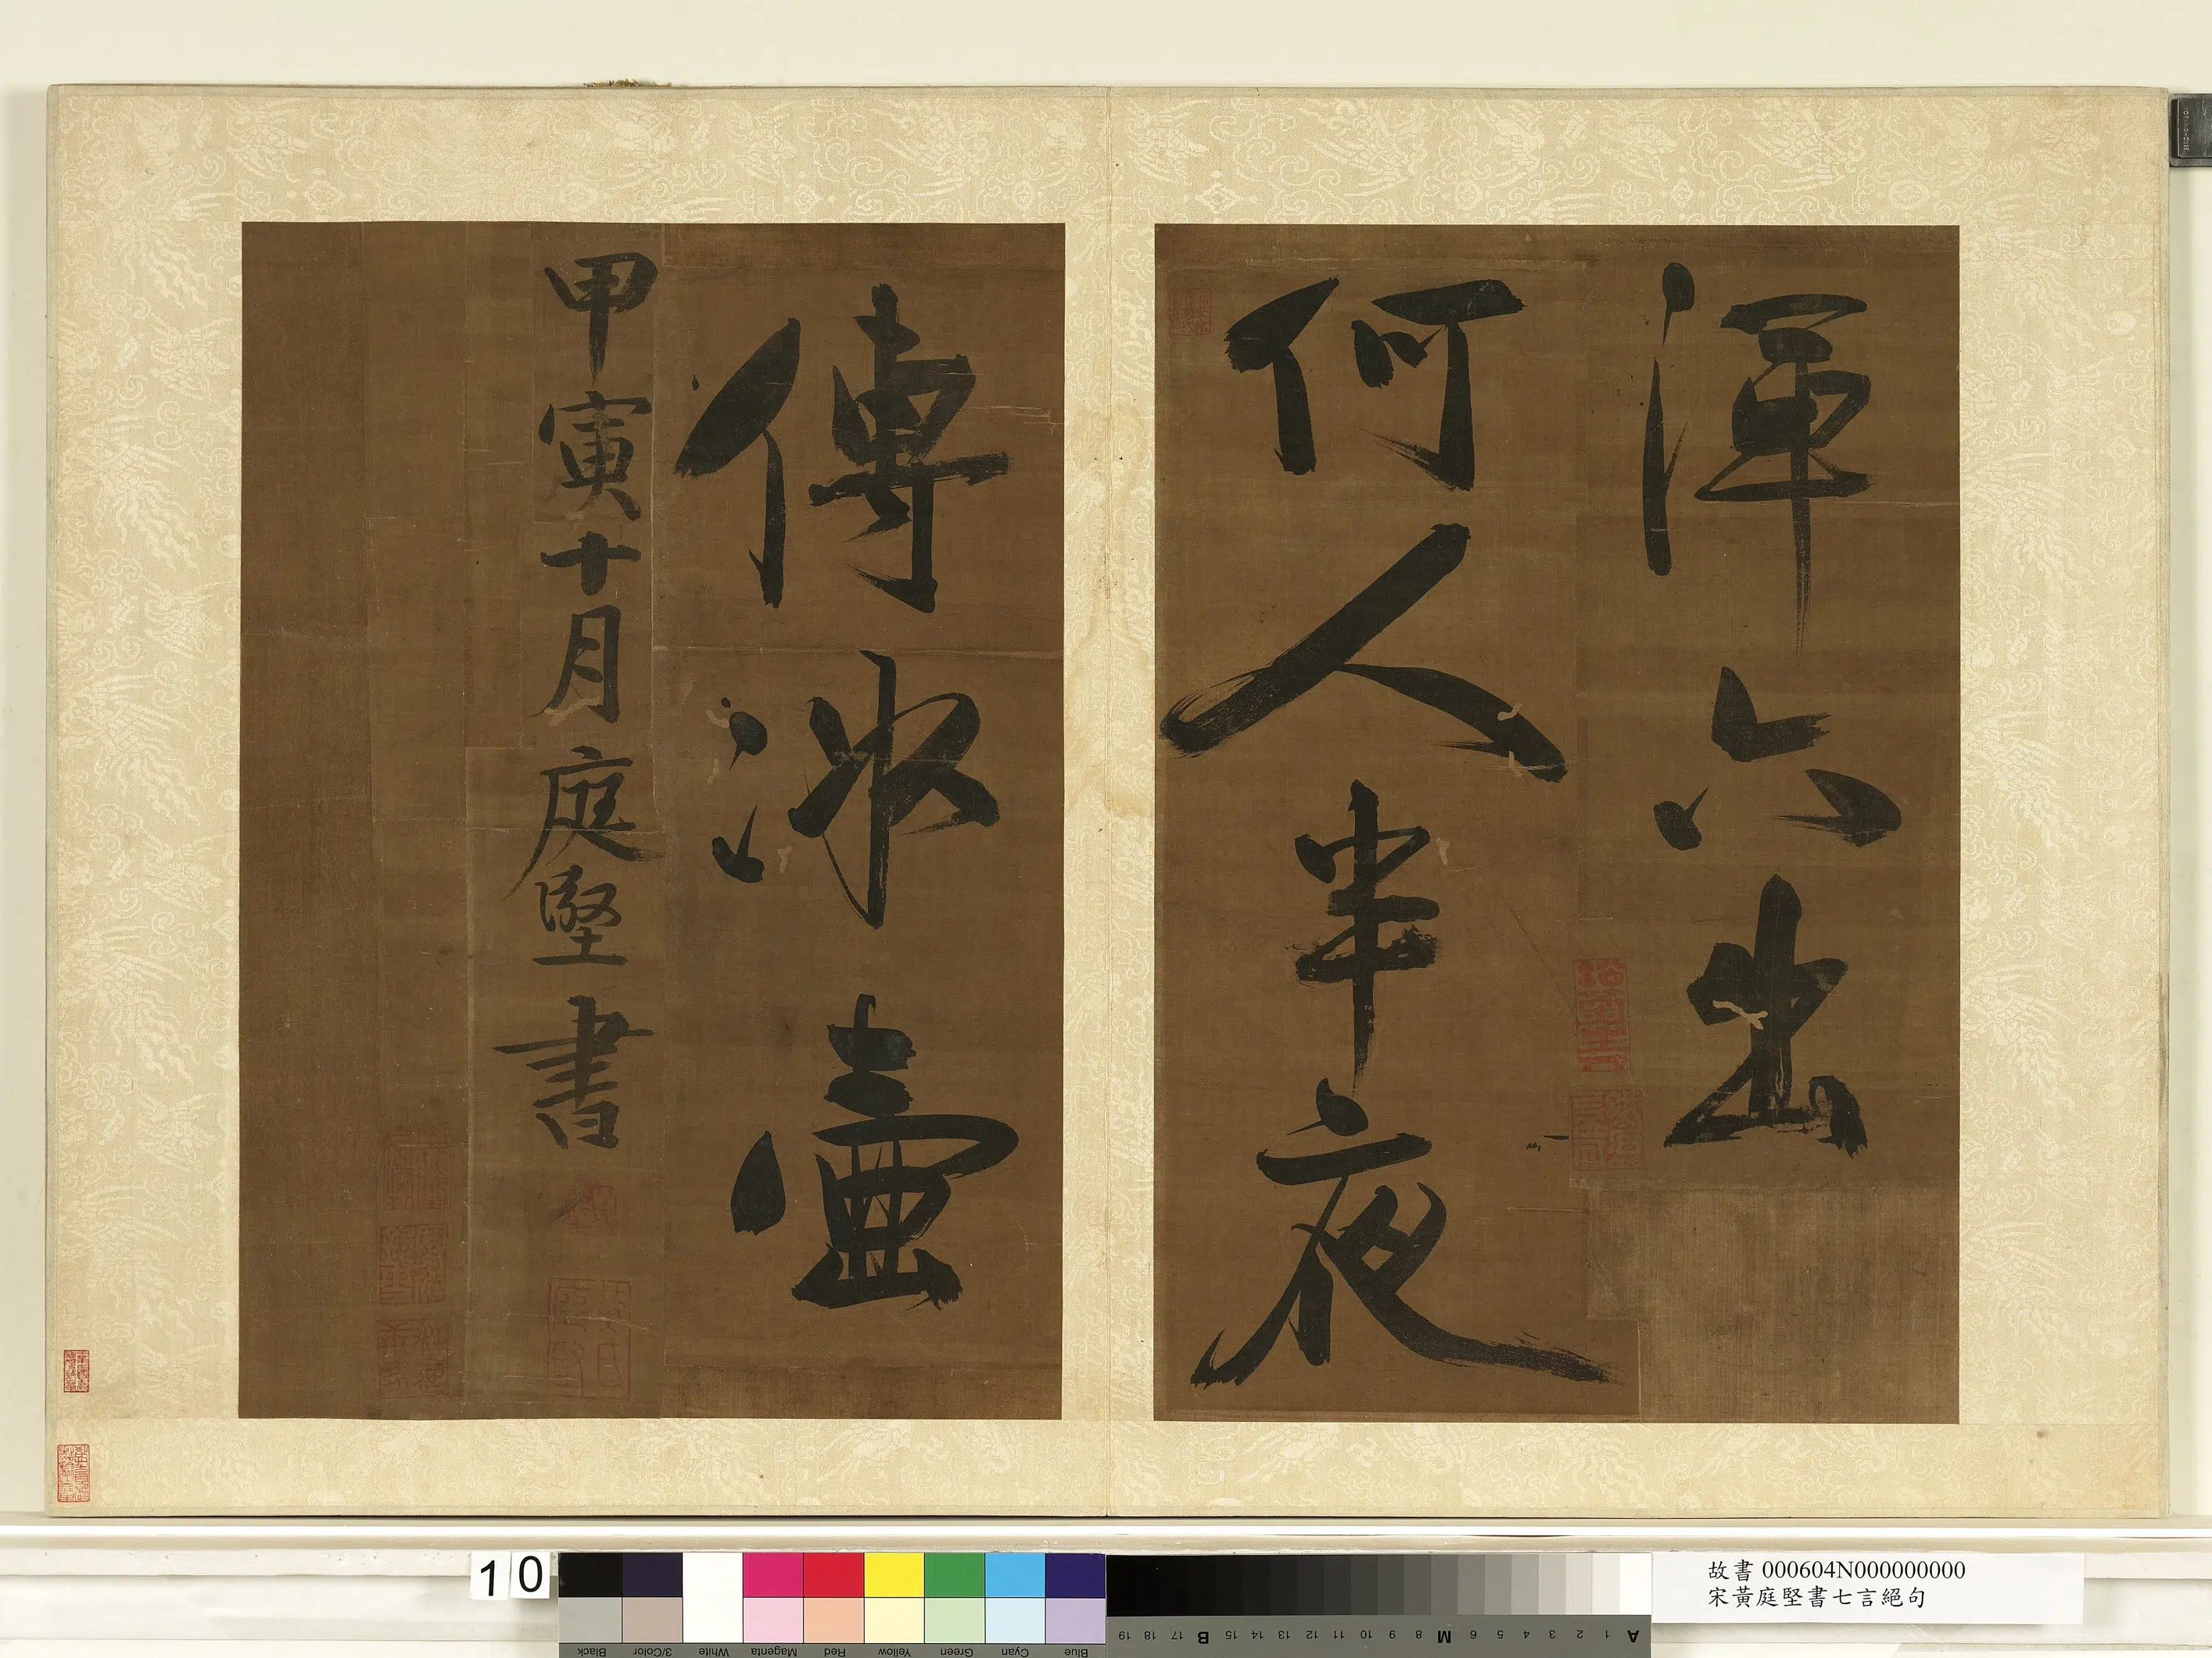 渾六出
何人半夜
傳冰壺
甲寅十月庭堅書
10
故書 000604N000000000
宋黃庭堅書七言絕句
Black 3/Color White Magenta Red Yellow Green Cyan Blue
19 18 17 B 15 14 13 12 11 10 9 8 M 6 5 4 3 2 1 A